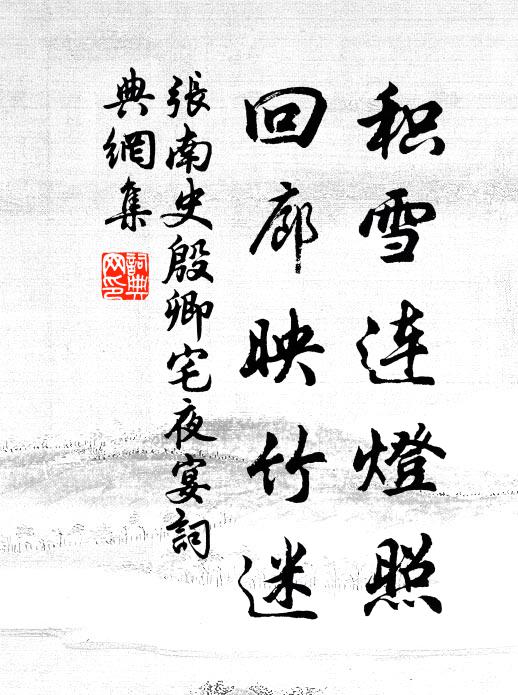 积雪连燈照
回廊映竹迷
張南史殷卿宅夜宴詞
典網集
詞典网印